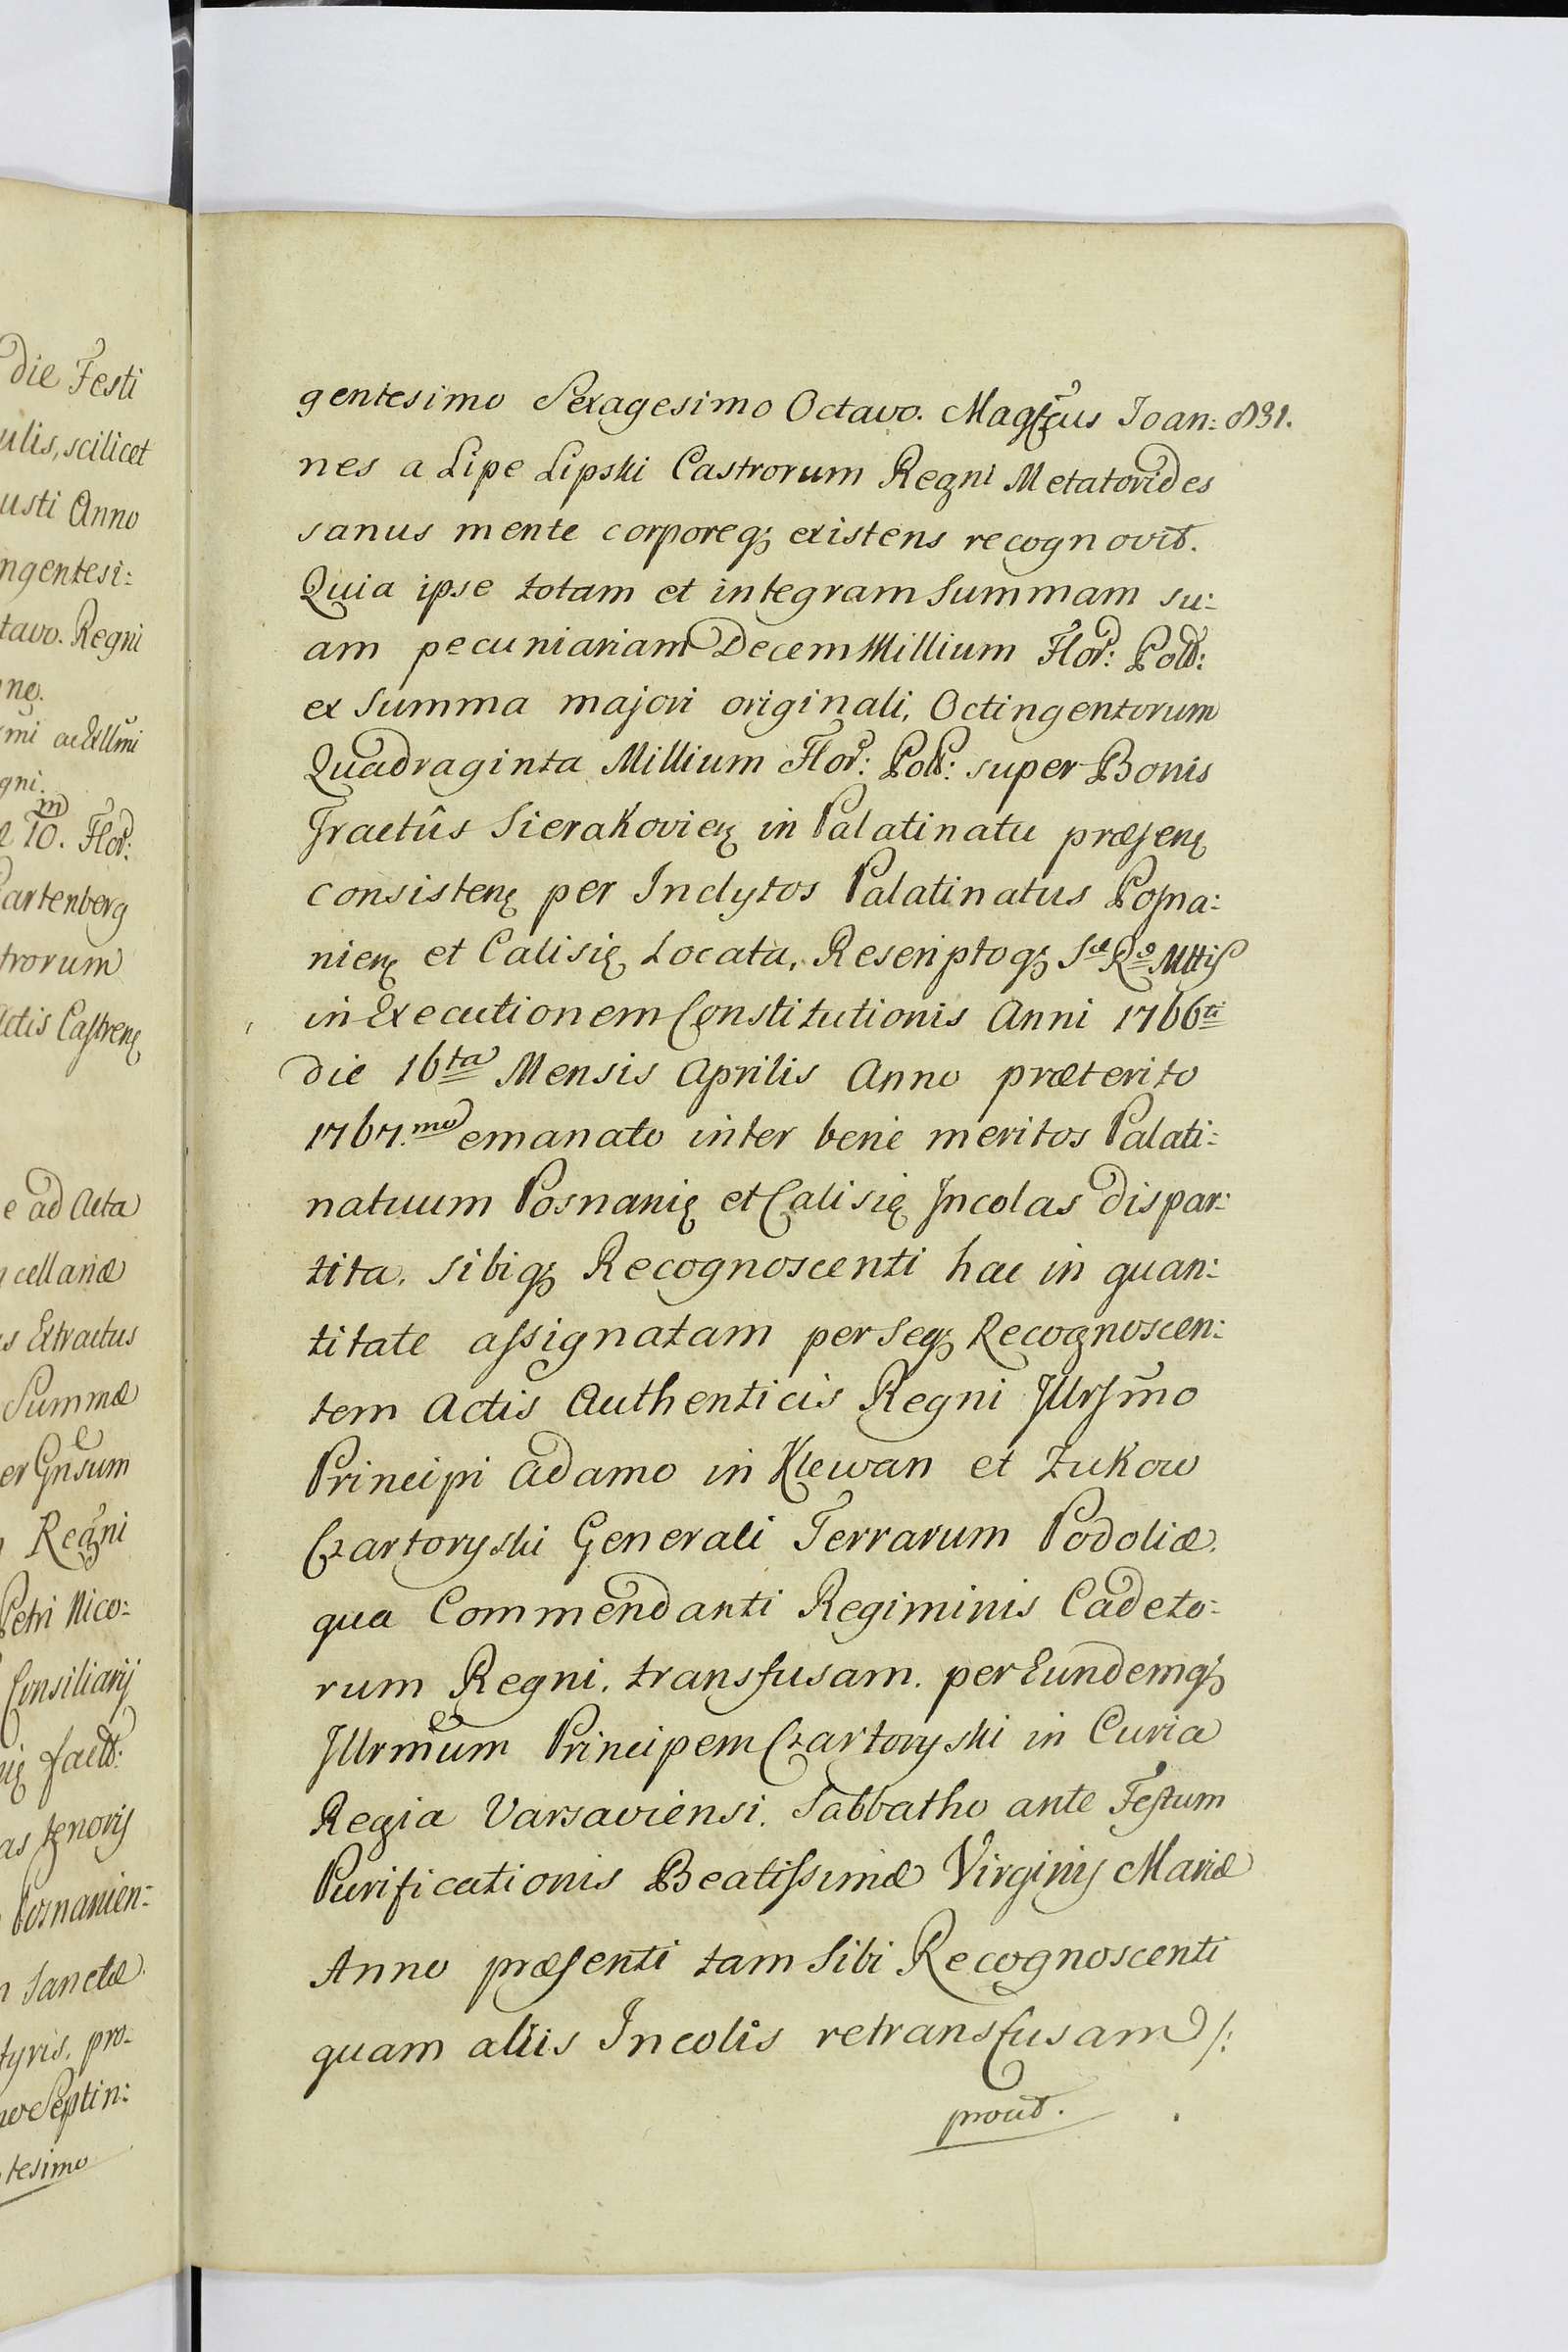 die Festi
ulis, scilicet
usti Anno
ngentesi:
tavo. Regni
mi ac Illmi
gni.
10. Flor:
artenberg
trorum
Actis Castren̄
e ad Acta
cellariæ
s Extractus
Summæ
er Gnsum
Regni
Petri Nico:
Consiliarij
fact:
as tenoris
Posnanien:
Sanctæ
tyris, pro-
Septin:
tesimo
gentesimo Sexagesimo Octavo. Magfcus Joan: 831.
nes a Lipe Lipski Castrorum Regni Metatorides
sanus mente corporeq; existens recognovit.
Quia ipse totam et integram Summam su:
am pecuniariam Decem Millium Flor: Pol:
ex Summa majori originali, Octingentorum
Quadraginta Millium Flor: Pol: super Bonis
Tractûs Sierakovien̄ in Palatinatu præsen̄
consisten̄ per Inclytos Palatinatus Posna:
nien̄ et Calisien̄ Locata, Rescriptoq; Sæ Ræ Mttis
in Executionem Constitutionis Anni 1766ti
die 16ta Mensis Aprilis Anno præterito
1767.mo emanato inter bene meritos Palati:
natuum Posnanię et Calisię Incolas dispar:
tita, sibiq; Recognoscenti hac in quan:
titate assignatam per Seq; Recognoscen:
tem Actis Authenticis Regni Illrsmo
Principi Adamo in Klewan et Zukow
Czartoryski Generali Terrarum Podoliæ,
qua Commendanti Regiminis Cadeto:
rum Regni, transfusam, per Eundemq;
Illrmum Principem Czartoryski in Curia
Regia Varsaviensi, Sabbatho ante Festum
Purificationis Beatissimæ Virginis Mariæ
Anno præsenti tam Sibi Recognoscenti
quam aliis Incolis retransfusam /:
prout.